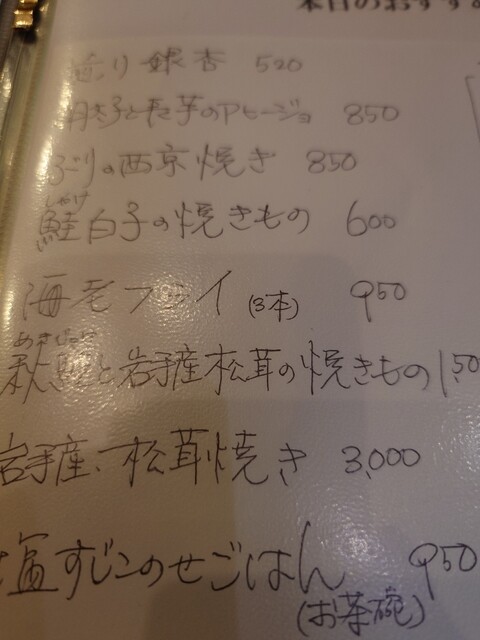 本日のおすす
煎り銀杏 520
牡蠣と長芋のアヒージョ 850
ぶりの西京焼き 850
しゃけ
鮭白子の焼きもの 600
海老フライ (3本) 950
秋と岩手産松茸の焼きもの 1,50
岩手産、松茸焼き 3,000
塩すじこのせごはん 950
(お茶碗)